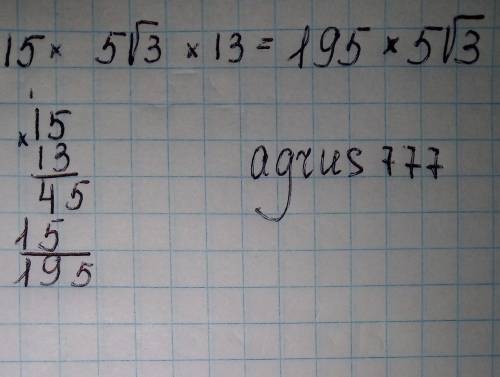 15 × 5√3 × 13 = 195 × 5√3
1
× 15
13
45
15
195
agrus 777